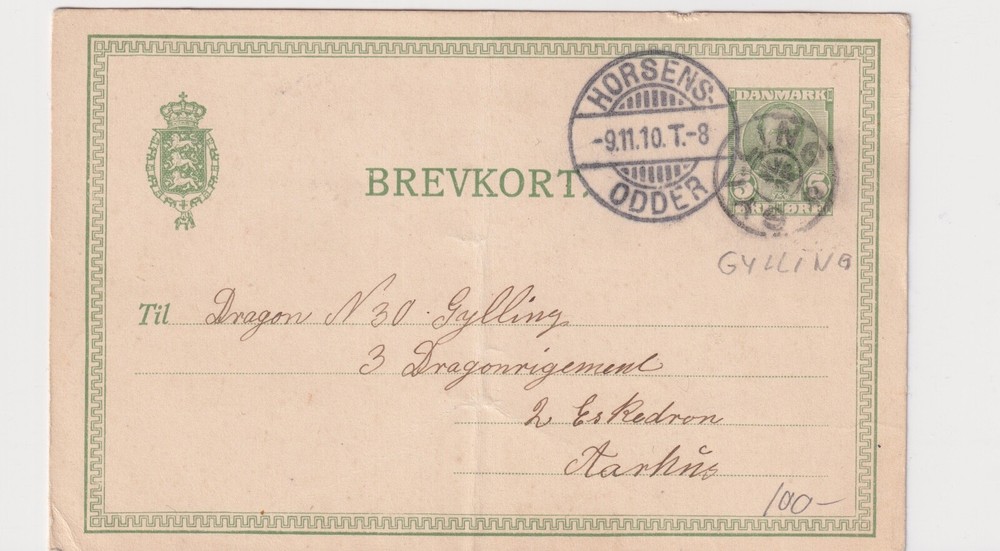 HORSENS-
-9.11.10. T.-8
ODDER
DANMARK
5 5
BREVKORT.
GYLLING
Til Dragon N 30 Gylling
3 Dragonrigement
2 Eskedron
Aarhus
100-